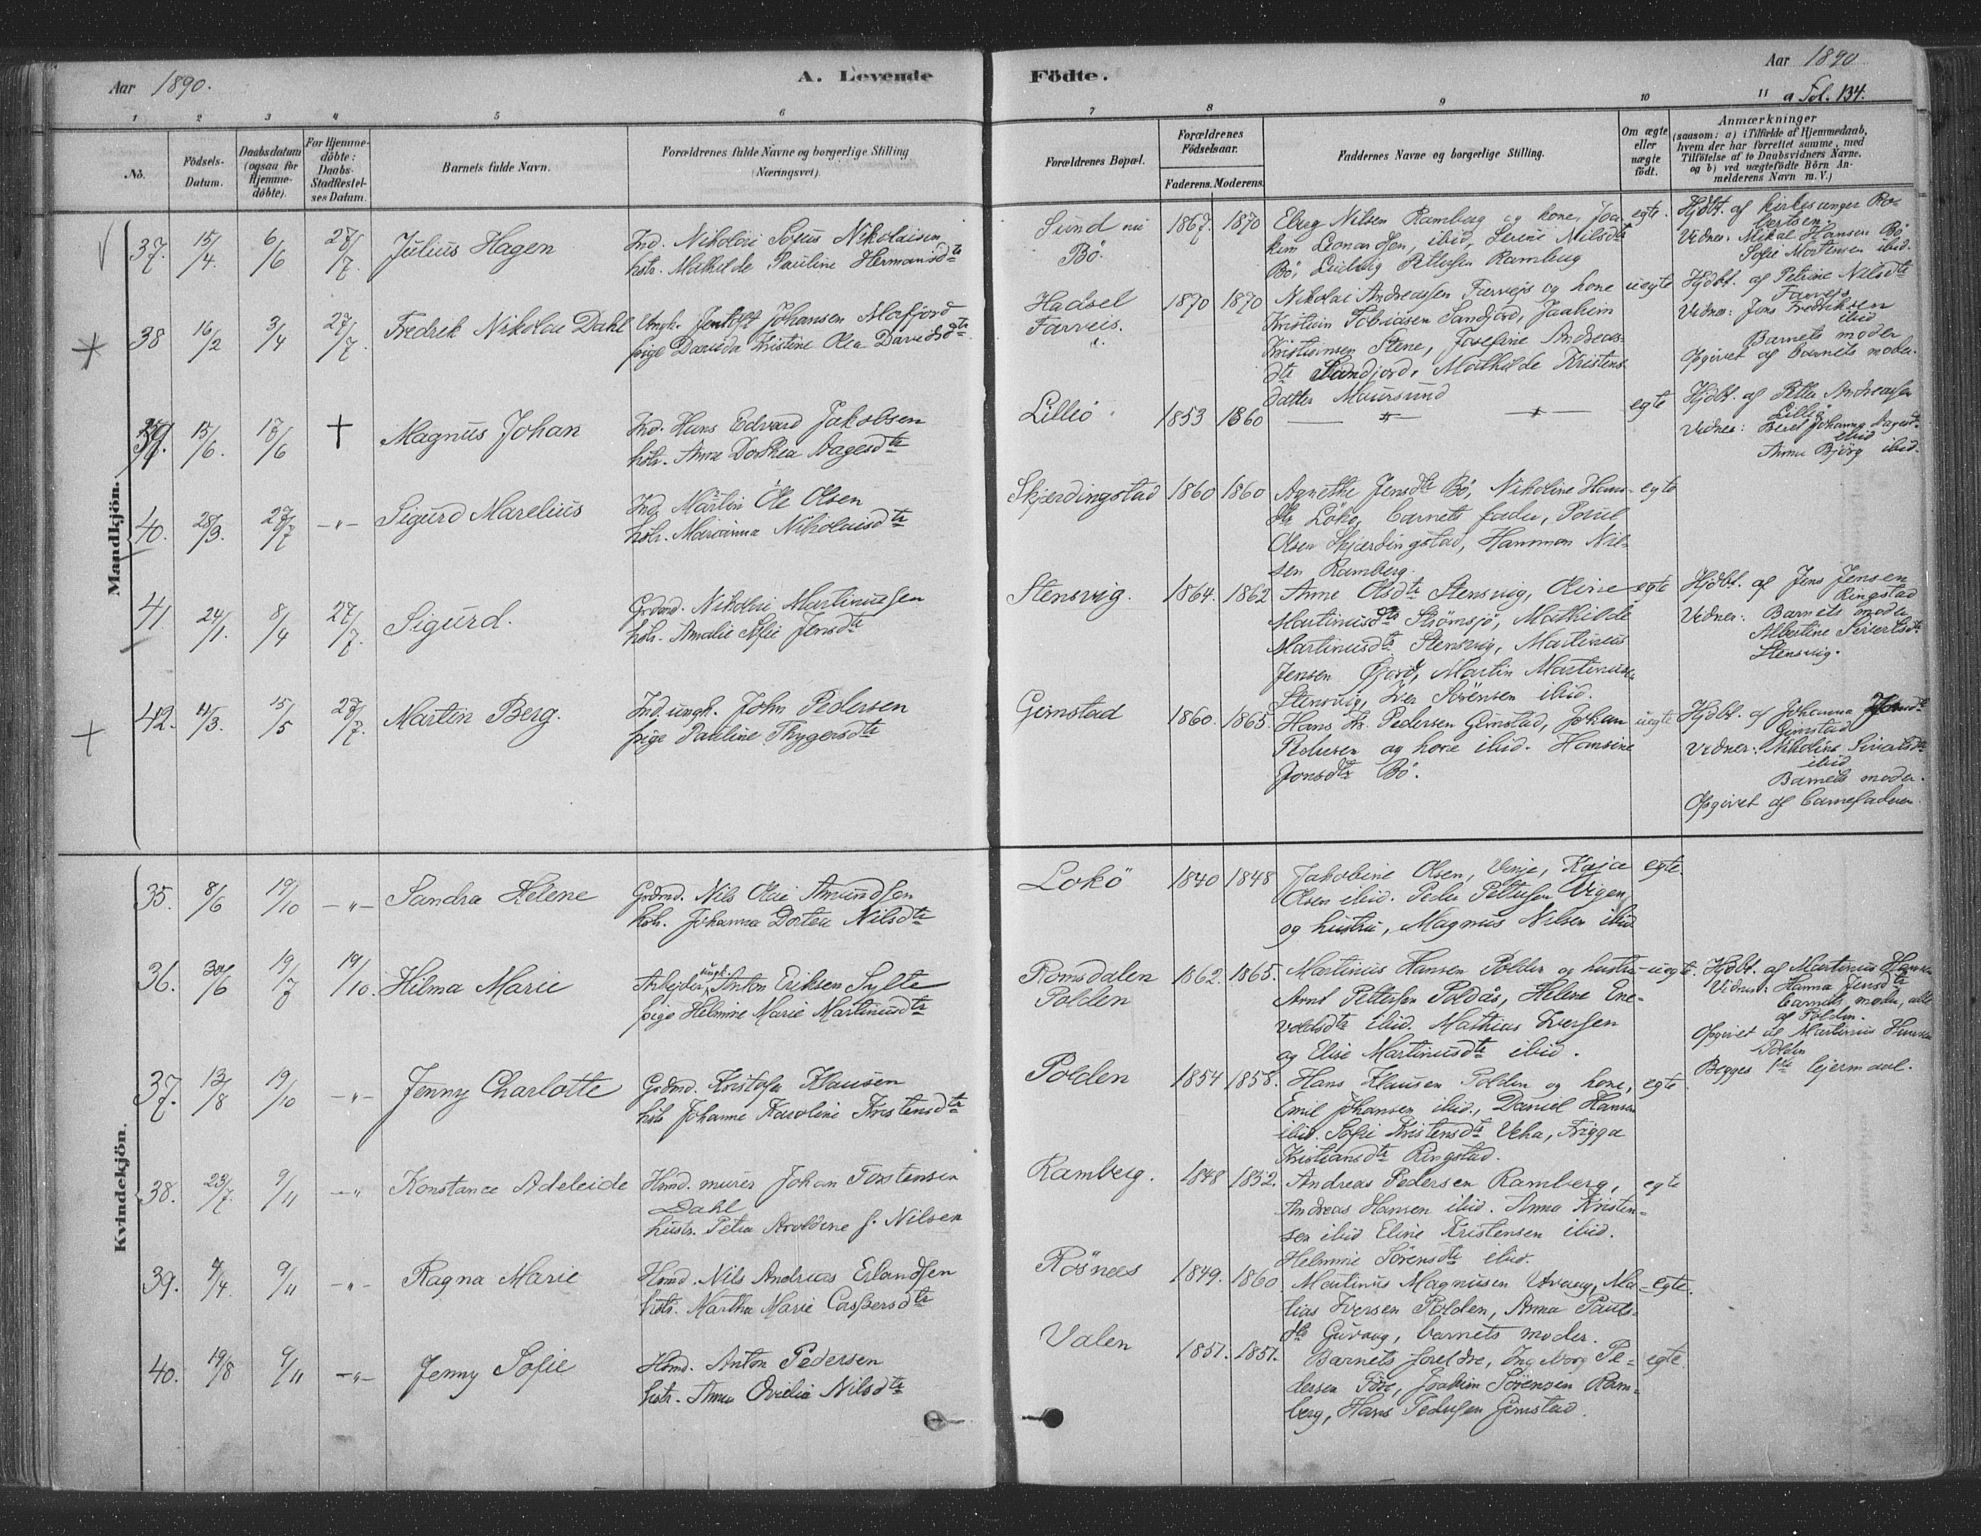 Aar 1890.
A. Levende
Födte.
Aar 1890
a Fol. 134.
1 2 3 4 5 6 7 8 9 10 11
No.
Födsels-Datum.
Daabsdatum (ogsaa for Hjemmedöbte).
For Hjemmedöbte: Daabs-Stadfæstelses Datum.
Barnets fulde Navn.
Forældrenes fulde Navne og borgerlige Stilling (Næringsvei).
Forældrenes Bopæl.
Forældrenes Födselsaar.
Faderens. Moderens.
Faddernes Navne og borgerlige Stilling.
Om ægte eller uægte födt.
Anmærkninger
(saasom: a) i Tilfælde af Hjemmedaab, hvem der har forrettet samme, med Tilföielse af to Daabsvidners Navne, og b) ved uægtefödte Börn Anmelderens Navn m. V.)
Mandkjön.
37. 15/4. 6/6 27/7. Julius Hagen
Ind. Nikolai Sofus Nikolaisen
hstr. Mathilde Pauline Hermansdtr
Sund nu
Bö.
1867. 1870
Elberg Nilsen Ramberg og kone, Joa-
kim Leonardsen, ibid, Serine Nilsdtr
Bö, Ludvig Pettersen Ramberg
egte.
Hjdbt. af kirkesanger Ro-
bertsen.
Vidner: Mikal Hansen Bö
Sofie Mortensen ibid.
38 16/2 3/4 27/7. Fredrik Nikolai Dahl
Ungk. Jentoft Johansen Melfjord
pige Davida Kristine Olea Davidsdtr
Hadsel
Farveis.
1870 1870
Nikolai Andreassen Farvejs og kone
Kristian Tobiasen Sandjord, Joakim
Kristiansen Stene, Josefine Andreas-
dtr Sandjord, Mathilde Kristens
datter Maursund
uegte
Hjdbt. af Petrine Nilsdtr
Farvejs
Vidner: Jens Fredriksen
ibid
Barnets moder
Opgivet af Barnets moder.
39. 15/6. 17/6 † Magnus Johan
Ind. Hans Edvard Jakobsen
hstr. Anne Dorthea Aagesdtr
Lilliö
1853 1860
— " — — " —
egte
Hjdbt. af Petter Andreassen
Lilliö
Vidner: Beret Johanna Aagesdtr
ibid
Anna Björg ibid.
40. 28/3. 27/7 —"— Sigurd Marelius
Ind. Martin Ole Olsen
hstr. Marianna Nikolaisdtr
Skjærdingstad
1860 1860
Agnethe Jensdtr Bö, Nikoline Hans-
dtr Lökö, barnets fader, Povel
Olsen Skjærdingstad, Hammon Nil-
sen Ramberg.
egte
41 24/1. 8/4 27/7. Sigurd.
Grdmd. Nikolai Martinussen
hstr. Amalie Sofie Jensdtr
Stensvig.
1864. 1862
Anne Olsdtr Stensvig, Oline
Martinusdtr Strömsjö, Mathilde
Martinusdtr Stensvig, Martinus
Jensen Fjord, Martin Martinus-
Stensvig, Iver Sörensen ibid.
egte
Hjdbt. af Jens Jensen
Ringstad
Vidner: Barnets moder
Albertine Sivertsdtr
Stensvig.
42. 21/3. 15/5 27/7. Martin Berg.
Ind. ungk. John Pedersen
pige Pauline Thygersdtr
Gimstad
1860. 1865.
Hans Kr. Pedersen Gimstad, Johan
Pedersen og kone ibid. Hansine
Jonsdtr Bö.
uegte
Hjdbt. af Johanna
Gimstad
Vidner: Nikoline Sivertsdtr
ibid
Barnets moder.
Opgivet af barnefaderen.
Kvindekjön.
35. 8/6 19/10 —"— Sandra Helene
Grdmd. Nils Olai Amundsen
hstr. Johanna Dortea Nilsdtr
Lokö
1840 1848
Jakobine Olsen, Vinje, Kaja
Olsen ibid. Peder Pettersen Vigen
og hustru, Magnus Nilsen ibid
egte.
36. 30/6 19/7 19/10. Hilma Marie
Arbejder ungk. Anton Eriksen Sylte
pige Helmine Marie Martinusdtr
Romsdalen
Polden
1862. 1865.
Martinus Hansen Polden og hustru
Arnt Pettersen Poldås, Helene Ene-
voldsdtr ibid. Mathias Iversen
og Elise Martinusdtr ibid.
uegte.
Hjdbt. af Martinus Hansen
Vidner: Hanna Jensdtr
barnets moder, alle
af Polden.
Opgivet af Martinus Hansen
Polden
Begges 1ste lejermaal.
37. 13/8 19/10 —"— Jenny Charlotte
Grdmd. Kristofer Klausen
hstr Johanne Karoline Kristensdtr
Polden
1854 1858.
Hans Klausen Polden og kone,
Emil Johansen ibid., Daniel Hansen
ibid. Sofie Kristensdtr Veha, Frigga
Kristiansdtr Ringstad.
egte
38. 23/7. 9/11 —"— Konstance Adeleide
Hsmd. murer Johan Torstensen
Dahl
hustr. Petra Aroldine f. Nilsen
Ramberg.
1848 1852.
Andreas Pedersen Ramberg,
Andreas Hansen ibid. Anna Kristen-
sen ibid Eline Kristensen ibid.
Helmine Sörensdtr ibid.
egte
39. 9/4. 9/11 —"— Ragna Marie
Hsmd. Nils Andreas Erlandsen
hstr. Martha Marie Caspersdtr
Rösnes
1849. 1860
Martinus Magnusen Utvaag, Ma-
tias Iversen Polden, Anna Pauls-
dtr Guvaag, barnets moder.
egte.
40. 19/8 9/11 —"— Jenny Sofie
Hsmd. Anton Pedersen
hstr. Anna Ovidia Nilsdtr
Valen
1857. 1857.
Barnets foreldre, Ingeborg Pe-
dersen Före, Joakim Sörensen Ram-
berg, Hans Pedersen Gimstad.
egte.